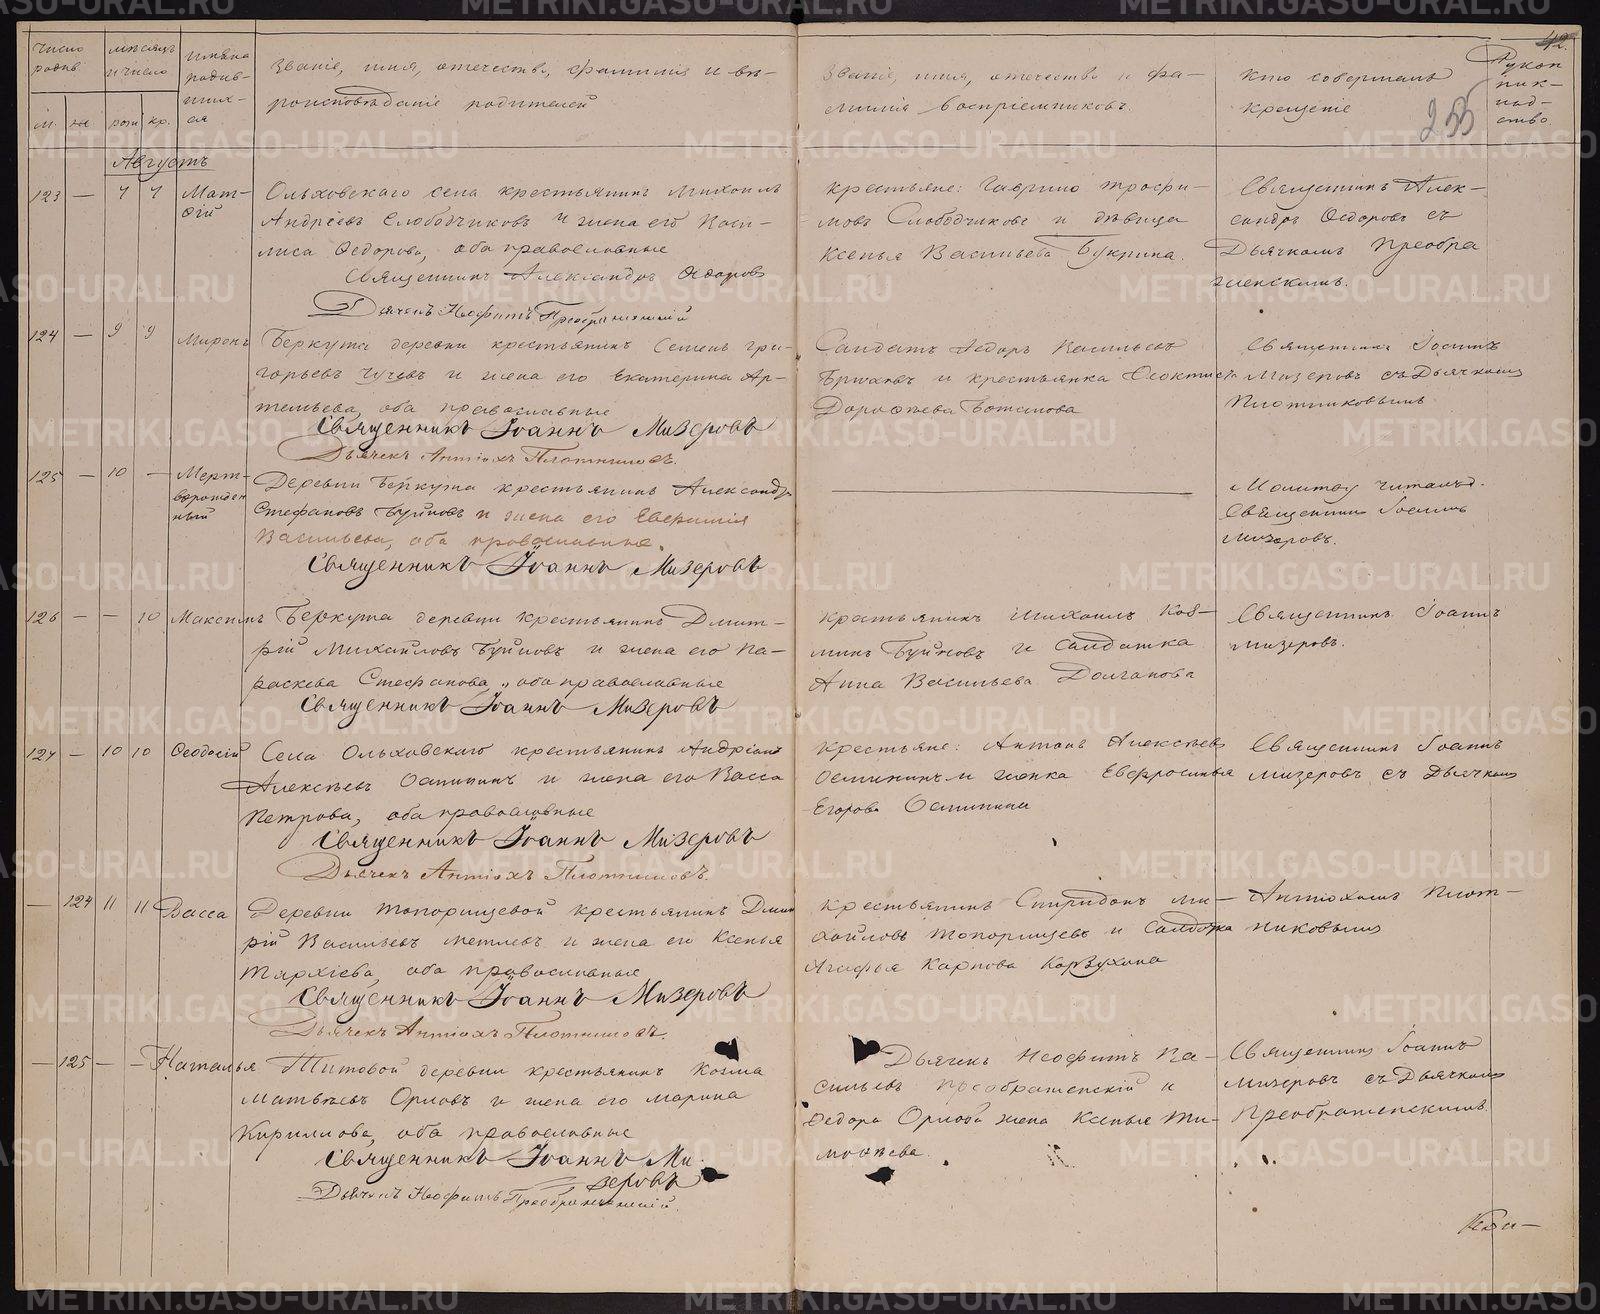 42.
255
Число родив.
Мѣсяцъ и число
Имена родив-шихся
Званіе, имя, отечество, фамилія и вѣ-
роисповѣданіе родителей
Званіе, имя, отечество и фа-
милія воспріемниковъ.
Кто совершалъ
крещеніе
Рукоприкладство.
м. ж. рож. кр.
Августъ
123 — 7 7 Мат-
ѳій
Ольховскаго села крестьянинъ Михаилъ
Андреевъ Слободчиковъ и жена его Васи-
лиса Ѳедорова, оба православные
Священникъ Александръ Ѳедоровъ
Дьячекъ Неофитъ Преображенскій
крестьяне: Гаврило Трофи-
мовъ Слободчиковъ и дѣвица
Ксенья Васильева Букрина.
Священникъ Алек-
сандръ Ѳедоровъ съ
Дьячкомъ Преобра
женскимъ.
124 — 9 9 Миронъ
Беркута деревни крестьянинъ Семенъ Гри-
горьевъ Чучевъ и жена его Екатерина Ар-
темьева, оба православные
Священникъ Іоаннъ Мизеровъ
Дьячекъ Антіохъ Плотниковъ.
Салдатъ Ѳедоръ Васильевъ
и крестьянка Ѳеоктиста
Дороѳеева
Священникъ Іоаннъ
Мизеровъ съ Дьячкомъ
Плотниковымъ
125 — 10 — Мерт-
ворожден
ный
Деревни Беркута крестьянинъ Александръ
Стефановъ Буйновъ и жена его Евфимія
Васильева, оба православные.
Священникъ Іоаннъ Мизеровъ
Молитву читалъ
Священникъ Іоаннъ
Мизеровъ.
126 — — 10 Максимъ
Беркута деревни крестьянинъ Дмит-
рій Михайловъ Буйновъ и жена его Па-
раскева Стефанова, оба православные
Священникъ Іоаннъ Мизеровъ
Крестьянинъ Михаилъ Коз-
минъ Буйновъ и Салдатка
Анна Васильева Долганова
Священникъ Іоаннъ
Мизеровъ.
127 — 10 10 Ѳеодосій
Села Ольховскаго крестьянинъ Андріанъ
Алексѣевъ Осминин и жена его Васса
Петрова, оба православные
Священникъ Іоаннъ Мизеровъ
Дьячекъ Антіохъ Плотниковъ.
Крестьяне: Антонъ Алексѣевъ
Осмининъ и женка Евфросинья
Егорова Осминина
Священникъ Іоаннъ
Мизеровъ съ Дьячкомъ
— 124 11 11 Васса
Деревни Топорищевой крестьянинъ Дмит
рій Васильевъ Метлевъ и жена его Ксенья
оба православные
Священникъ Іоаннъ Мизеровъ
Дьячекъ Антіохъ Плотниковъ.
крестьянинъ Спиридонъ Ми-
хайловъ Топорищевъ и Салдатка
Агафья Карпова
Антіохомъ Плот-
никовымъ
— 125 — — Наталья
Титовой деревни крестьянинъ Козма
Матвѣевъ Орловъ и жена его Марина
Кирилова, оба православные
Священникъ Іоаннъ Ми-
зеровъ
Дьячекъ Неофитъ Преображенскій.
Дьячекъ Неофитъ Ва-
сильевъ Преображенскій и
Ѳедора Орлова жена Ксенья Ти-
моѳеева.
Священникъ Іоаннъ
Мизеровъ съ Дьячкомъ
Преображенскимъ.
METRIKI.GASO-URAL.RU